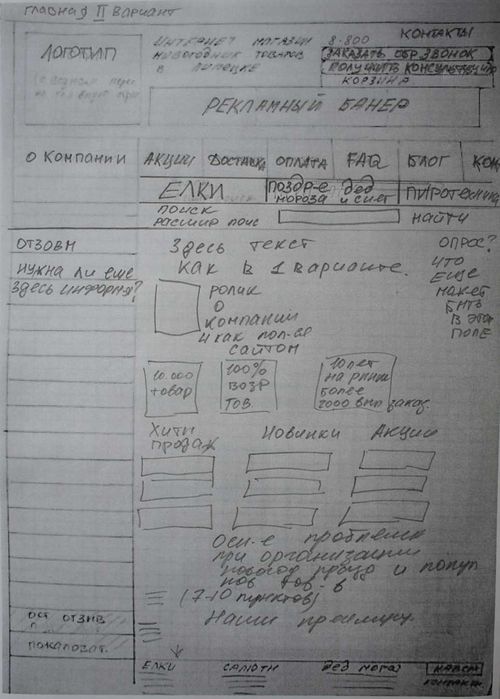 ГЛАВНАЯ II ВАРИАНТ
ЛОГОТИП
ИНТЕРНЕТ МАГАЗИН
НОВОГОДНИХ ТОВАРОВ
В ЛИПЕЦКЕ
8-800
КОНТАКТЫ
ЗАКАЗАТЬ ОБР ЗВОНОК
ПОЛУЧИТЬ КОНСУЛЬТАЦИЮ
КОРЗИНА
РЕКЛАМНЫЙ БАНЕР
О КОМПАНИИ
АКЦИИ
ДОСТАВКА
ОПЛАТА
FAQ
БЛОГ
КОН
ЕЛКИ
ПОЗДР-Е ДЕД
МОРОЗА И СНЕГ
ПИРОТЕХНИКА
ПОИСК
РАСШИР ПОИС
НАЙТИ
ОТЗОВЫ
НУЖНА ЛИ ЕЩЕ
ЗДЕСЬ ИНФОРМ?
Здесь текст
как в 1 варианте.
ОПРОС?
ЧТО
ЕЩЕ
МОЖЕТ
БЫТЬ
В ЭТОМ
ПОЛЕ
РОЛИК
О
КОМПАНИИ
И КАК ПОЛ-СЯ
САЙТОМ
10.000
товар
100%
ВОЗР
ТОВ.
10 лет
на рынке
более
2000 вып заказ.
Хиты
продаж
Новинки
Акции
Осн-е проблемы
при организации
новогод празд и покуп
нов тов-в
(7-10 пунктов)
Наши преимущ.
ОСТ ОТЗЫВ
ПОЖАЛОВАТ.
ЕЛКИ
САЛЮТЫ
ДЕД МОРОЗ
КОНТАКТЫ